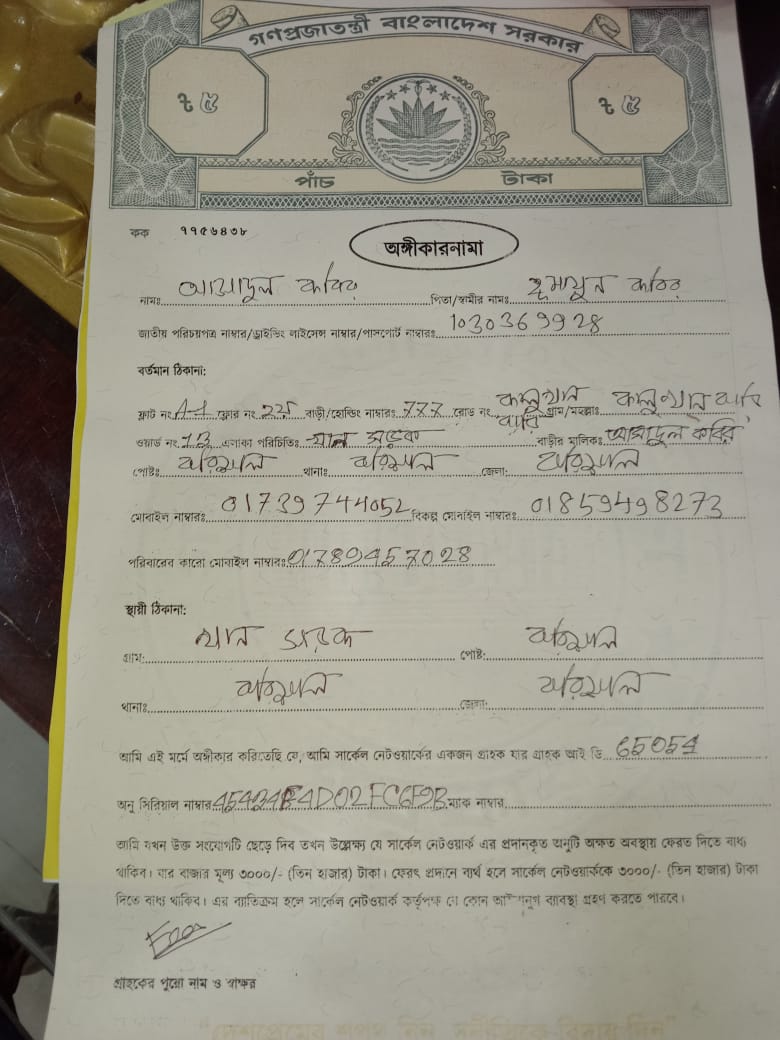 গণপ্রজাতন্ত্রী বাংলাদেশ সরকার
৳ ৫ ৳ ৫
পাঁচ টাকা
কক ৭৭৫৬৪৩৮
অঙ্গীকারনামা
নামঃ আসাদুল কবির পিতা/স্বামীর নামঃ হুমায়ুন কবির
জাতীয় পরিচয়পত্র নাম্বার/ড্রাইভিং লাইসেন্স নাম্বার/পাসপোর্ট নাম্বারঃ 1030369928
বর্তমান ঠিকানা:
ফ্লাট নং A-1 ফ্লোর নং 2য় বাড়ী/হোল্ডিং নাম্বারঃ 777 রোড নং কালুখান বাড়ি গ্রাম/মহল্লাঃ কালুখান বাড়ি
ওয়ার্ড নং 13 এলাকা পরিচিতিঃ খান সড়ক বাড়ীর মালিকঃ আসাদুল কবির
পোষ্টঃ বরিশাল থানাঃ বরিশাল জেলা: বরিশাল
মোবাইল নাম্বারঃ 01739744052 বিকল্প মোবাইল নাম্বারঃ 01859498273
পরিবারের কারো মোবাইল নাম্বারঃ 01789457028
স্থায়ী ঠিকানা:
গ্রাম: খান সড়ক পোষ্ট: বরিশাল
থানাঃ বরিশাল জেলা: বরিশাল
আমি এই মর্মে অঙ্গীকার করিতেছি যে, আমি সার্কেল নেটওয়ার্কের একজন গ্রাহক যার গ্রাহক আই ডি 65054
অনু সিরিয়াল নাম্বার ম্যাক নাম্বার
আমি যখন উক্ত সংযোগটি ছেড়ে দিব তখন উল্লেক্ষ্য যে সার্কেল নেটওয়ার্ক এর প্রদানকৃত অনুটি অক্ষত অবস্থায় ফেরত দিতে বাধ্য
থাকিব। যার বাজার মূল্য ৩০০০/- (তিন হাজার) টাকা। ফেরৎ প্রদানে ব্যর্থ হলে সার্কেল নেটওয়ার্ককে ৩০০০/- (তিন হাজার) টাকা
দিতে বাধ্য থাকিব। এর ব্যতিক্রম হলে সার্কেল নেটওয়ার্ক কর্তৃপক্ষ যে কোন ব্যবস্থা গ্রহণ করতে পারবে।
গ্রাহকের পুরো নাম ও স্বাক্ষর